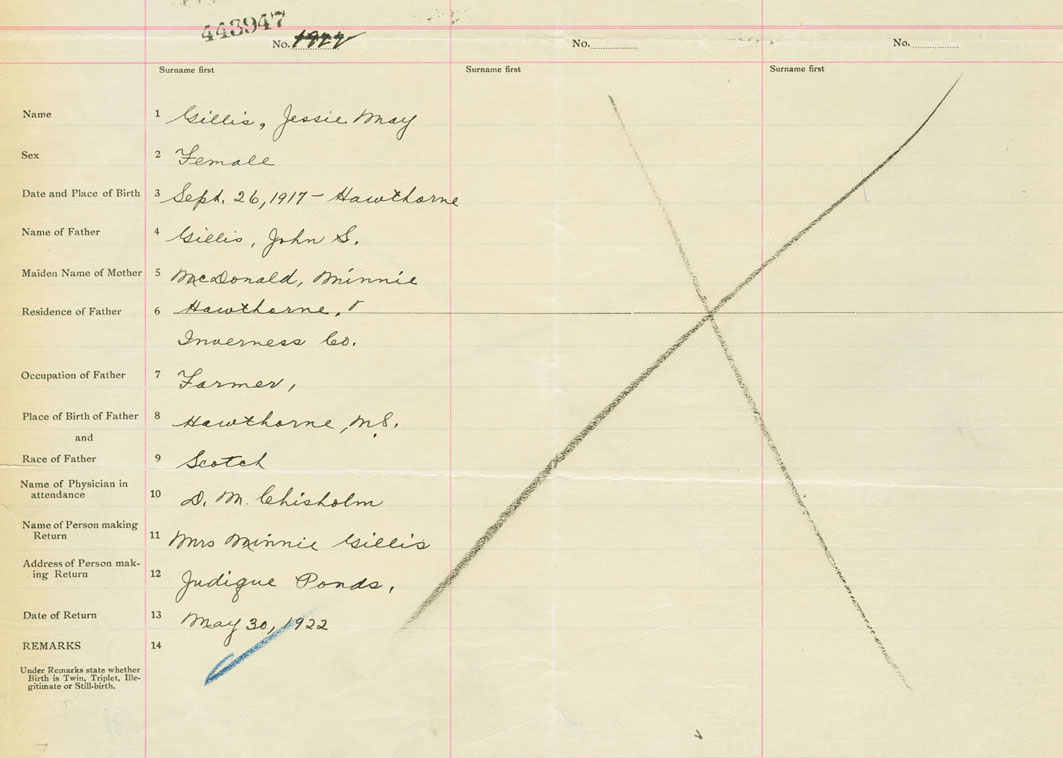 443947
No. 1922
No.
No.
Surname first
Surname first
Surname first
Name 1 Gillis, Jessie May
Sex 2 Female
Date and Place of Birth 3 Sept. 26, 1917 - Hawthorne
Name of Father 4 Gillis, John S.
Maiden Name of Mother 5 McDonald, Minnie
Residence of Father 6 Hawthorne,
Inverness Co.
Occupation of Father 7 Farmer,
Place of Birth of Father 8 Hawthorne, N.S.
and
Race of Father 9 Scotch
Name of Physician in
attendance 10 D. M. Chisholm
Name of Person making
Return 11 Mrs Minnie Gillis
Address of Person mak-
ing Return 12 Judique Ponds,
Date of Return 13 May 30, 1922
REMARKS 14
Under Remarks state whether
Birth is Twin, Triplet, Ille-
gitimate or Still-birth.